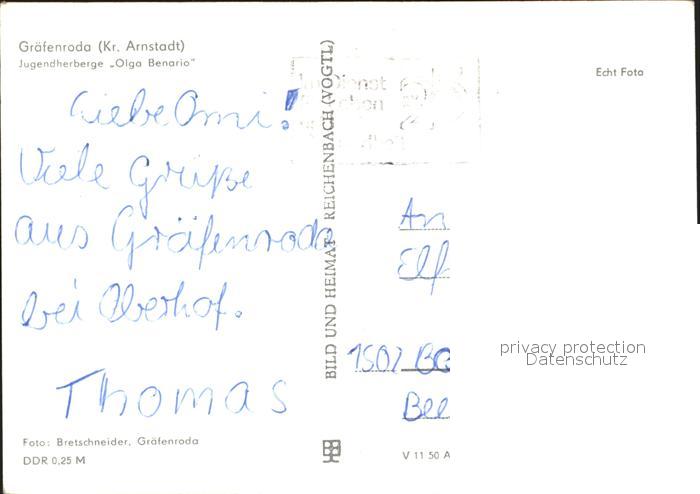 Gräfenroda (Kr. Arnstadt)
Jugendherberge „Olga Benario"
Liebe Omi!
Viele Grüße
aus Gräfenroda
bei Oberhof.
Thomas
Foto: Bretschneider, Gräfenroda
DDR 0,25 M
BILD UND HEIMAT REICHENBACH (VOGTL)
Im Dienst
Echt Foto
An
Elf
1502
Bee
privacy protection
Datenschutz
V 11 50 A